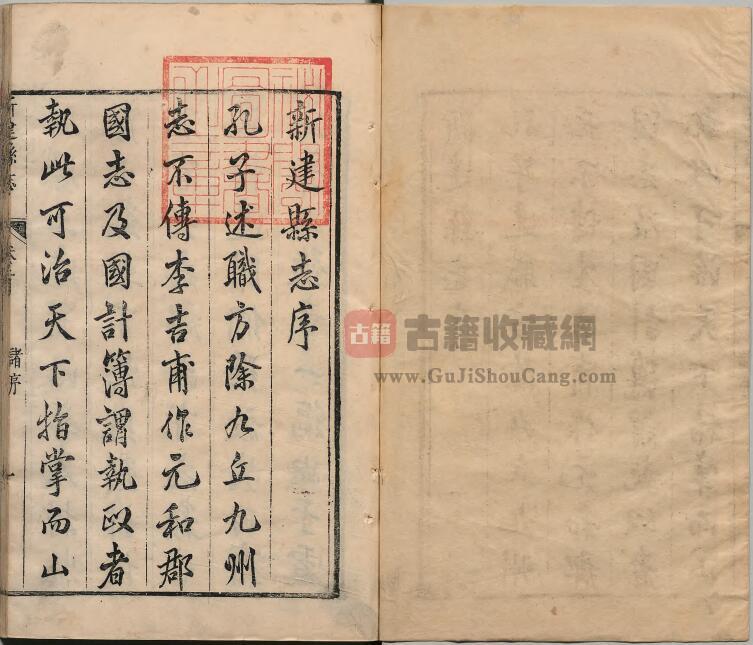 新建縣志序
孔子述職方除九丘九州
志不傳李吉甫作元和郡
國志及國計簿謂執政者
執此可治天下指掌而山
新建縣志
諸序
一
古籍
古籍收藏網
www.GuJiShouCang.com